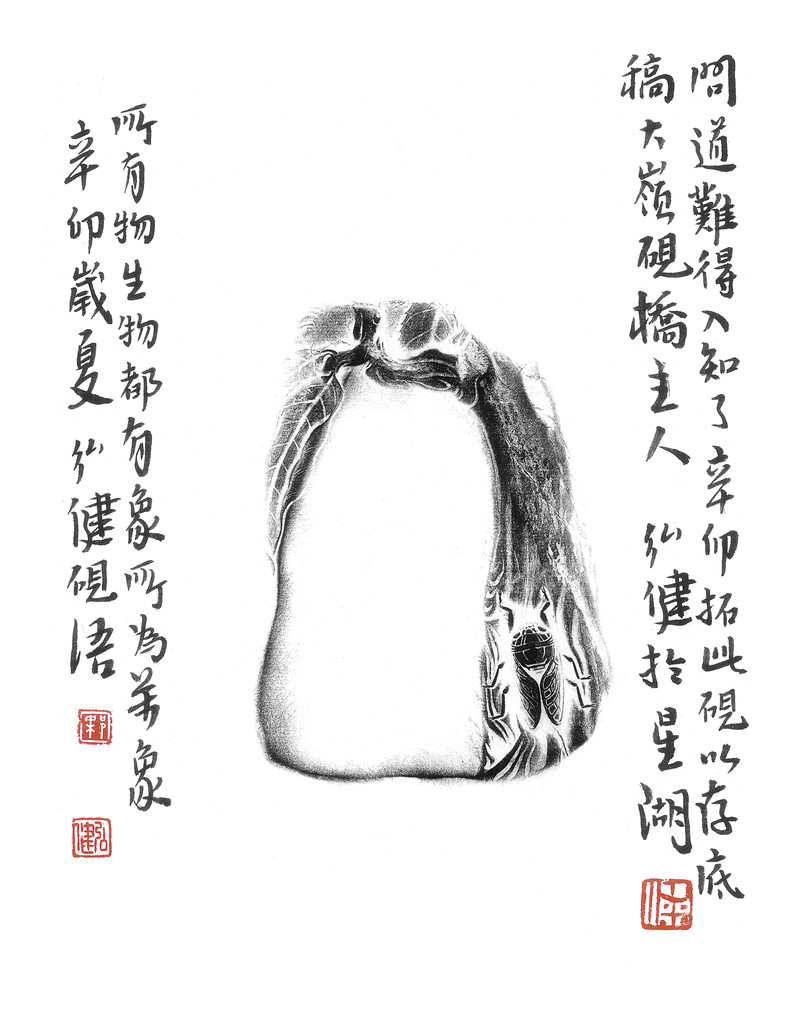 問道難得入知了辛卯拓此硯以存底
稿大嶺硯橋主人 弘健於星湖
所有物生物都有象所為萬象
辛卯歲夏 弘健硯語
弘健